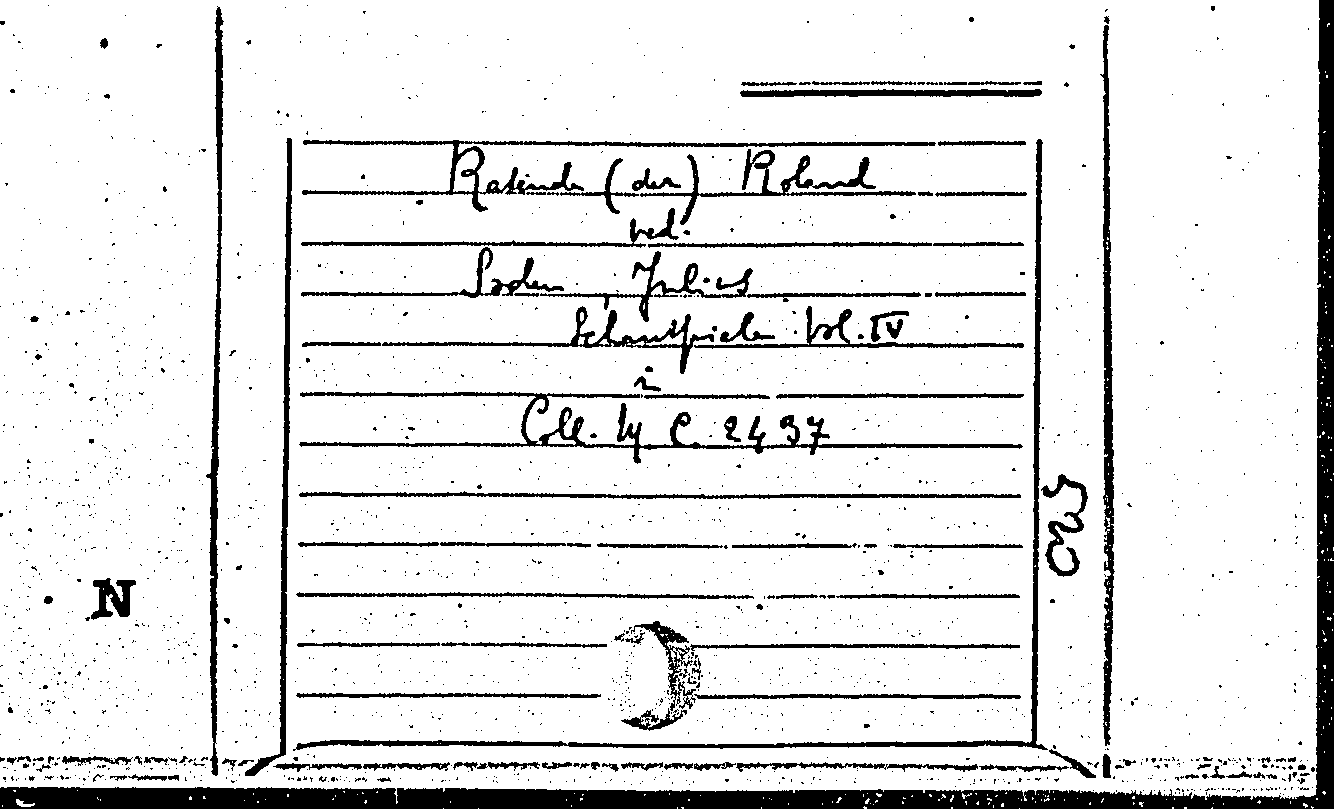 Rasende (der) Roland
ved.
Soden, Julius
Schauspiele Vol. IV
in
Coll. It. C. 2437
N